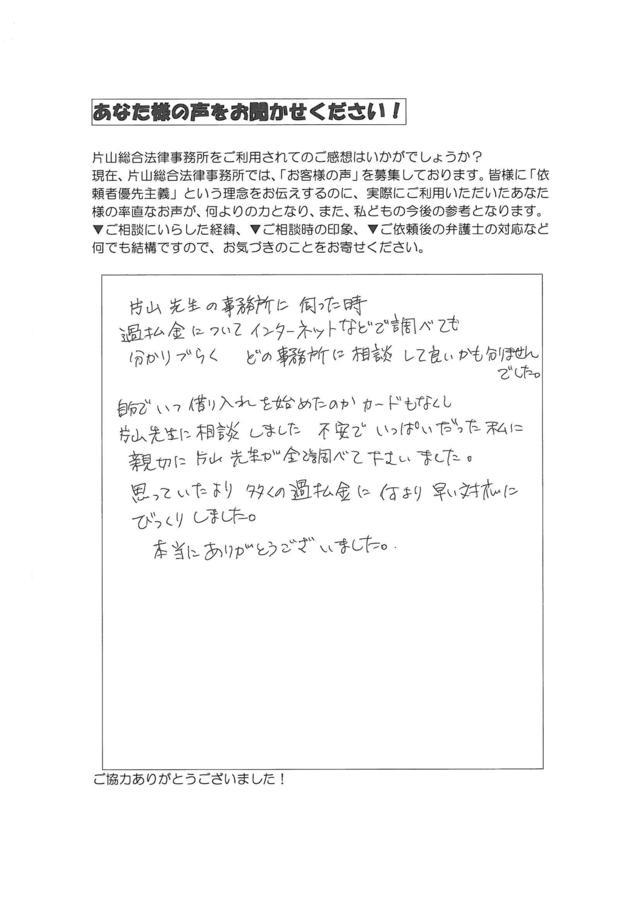 あなた様の声をお聞かせください！
片山総合法律事務所をご利用されてのご感想はいかがでしょうか？
現在、片山総合法律事務所では、「お客様の声」を募集しております。皆様に「依
頼者優先主義」という理念をお伝えするのに、実際にご利用いただいたあなた
様の率直なお声が、何よりの力となり、また、私どもの今後の参考となります。
▼ご相談にいらした経緯、▼ご相談時の印象、▼ご依頼後の弁護士の対応など
何でも結構ですので、お気づきのことをお寄せください。
片山先生の事務所に伺った時
過払金についてインターネットなどで調べても
分かりづらく どの事務所に相談して良いかも分りません
でした。
自分でいつ借り入れを始めたのかカードもなくし
片山先生に相談しました 不安でいっぱいだった私に
親切に片山先生が全て調べて下さいました。
思っていたより多くの過払金に何より早い対応に
びっくりしました。
本当にありがとうございました。
ご協力ありがとうございました！